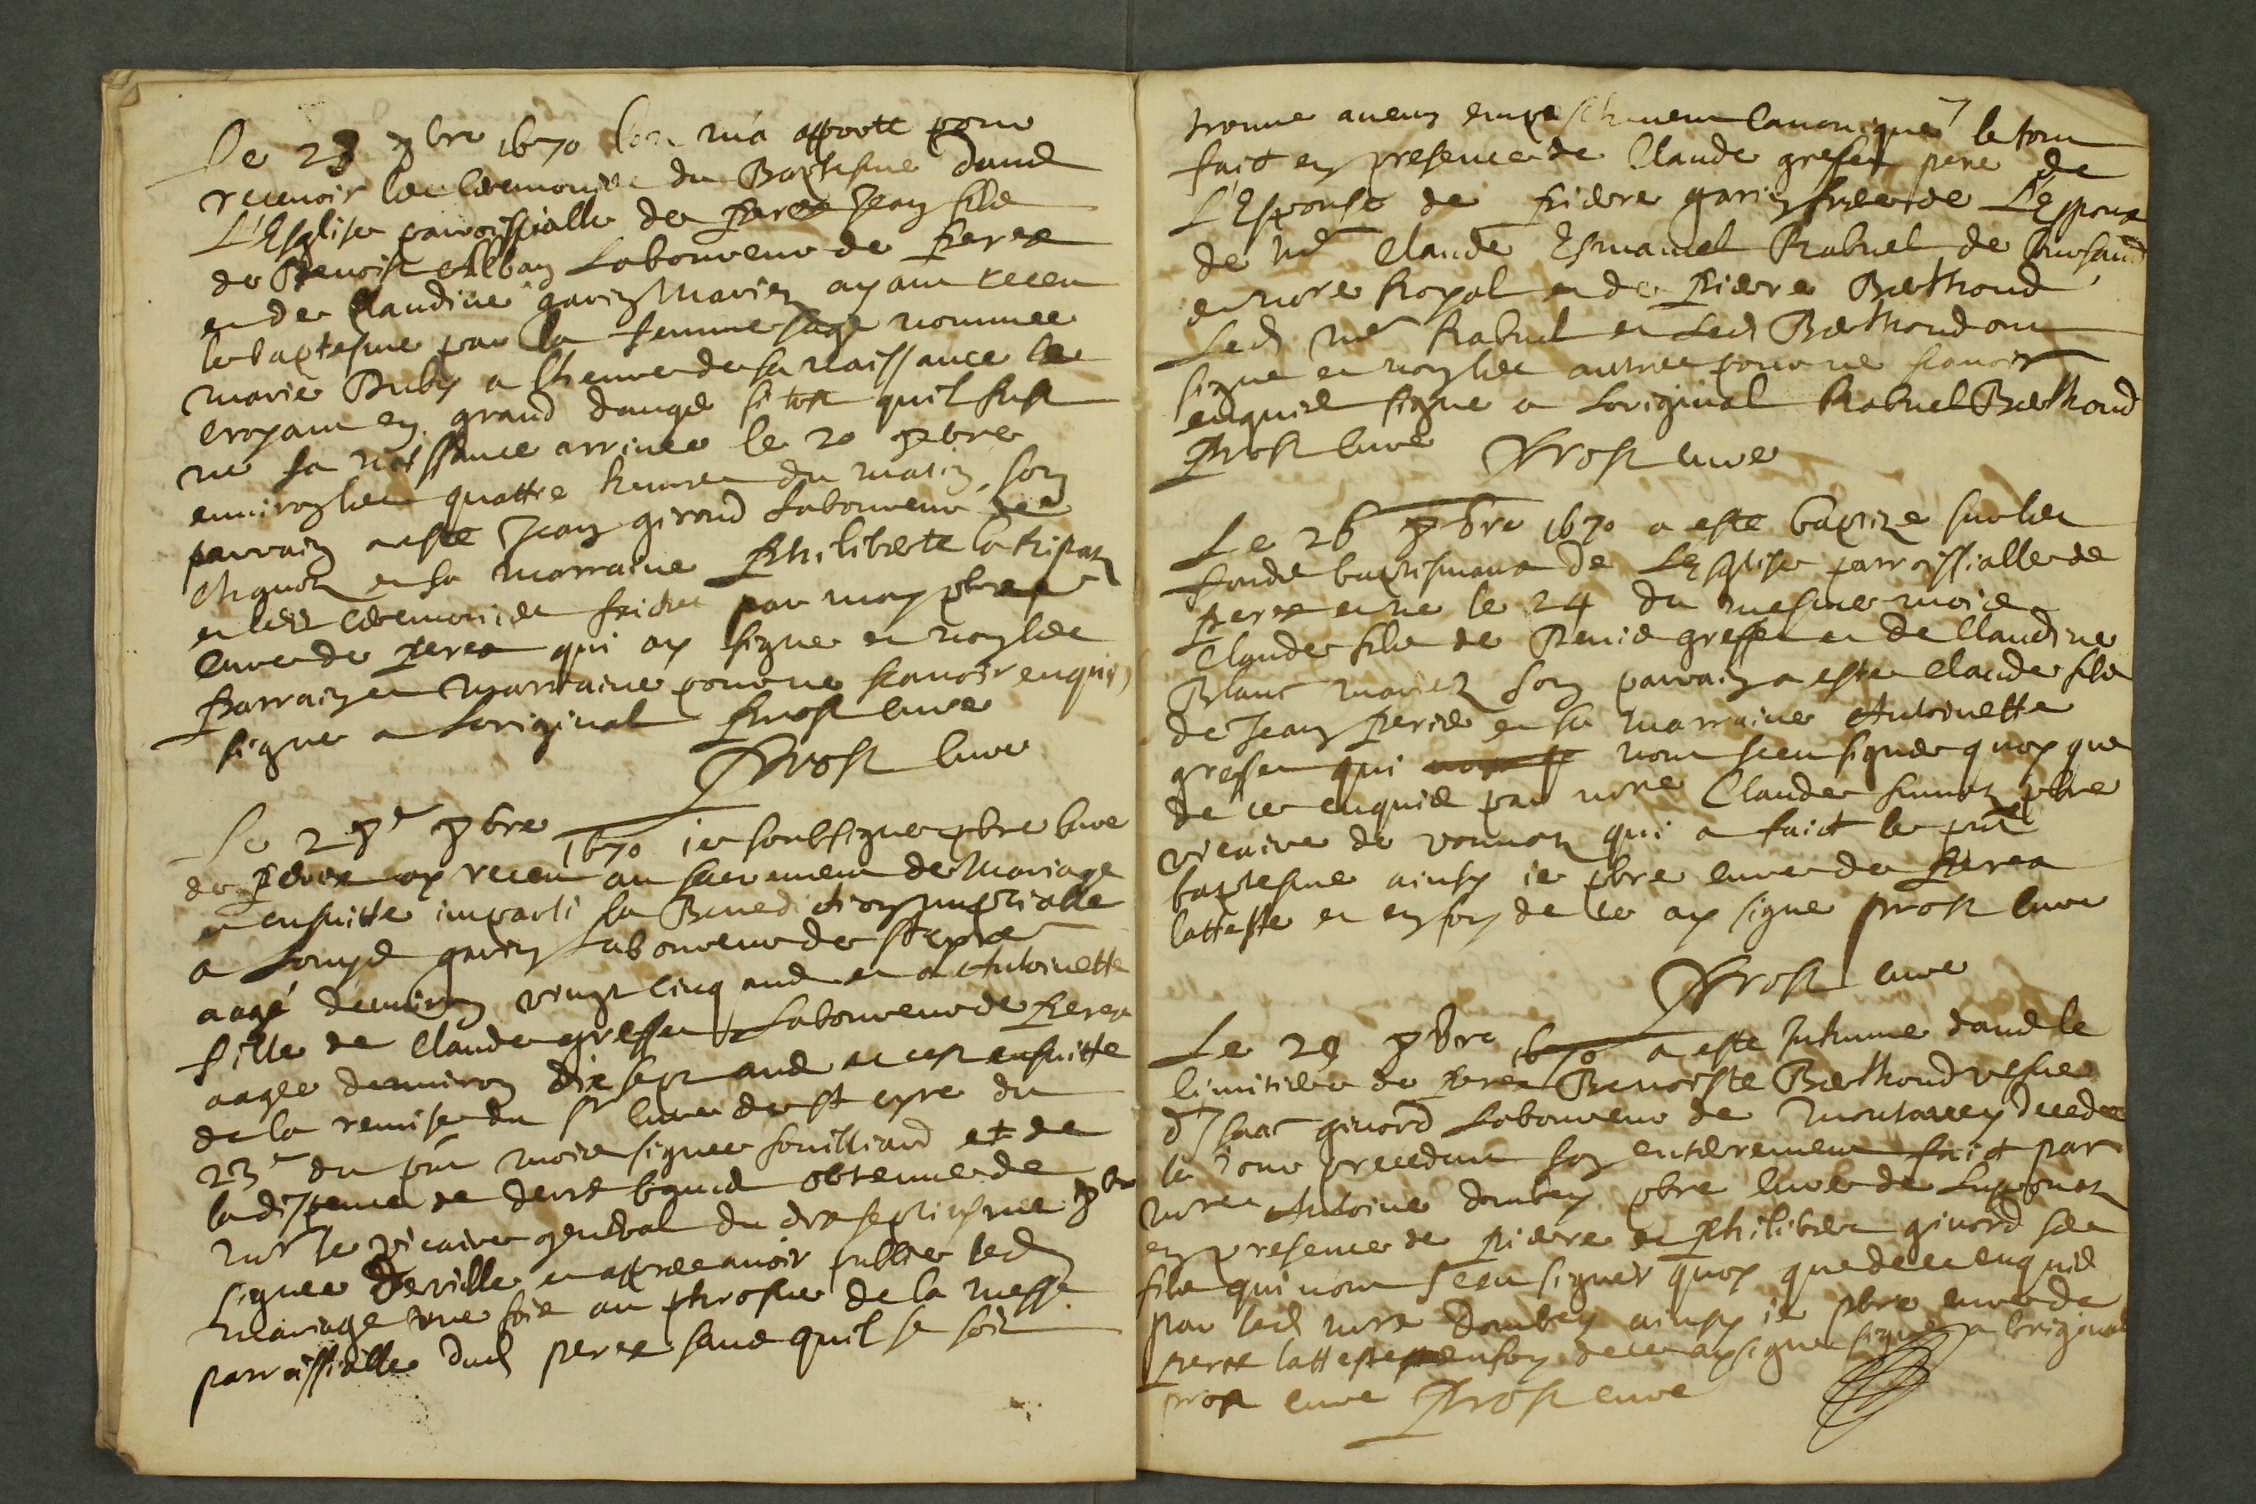 Le 23 9bre 1670 lon m'a apporte pour
recevoir les ceremonies du Baptesme dans
L'Esglise parroissialle de Perex Jean fils
de Benoist Alban Laboureur de Perex
et de Claudine garin Mariez ayant receu
le baptesme par la femme sage nommee
marie Duby a l'heure de sa naissance le
croyant en grand danger si tost quil fust
ne sa naissance arrivee le 20 9bre
environ les quattre heures du matin son
parrain a esté Jean giroud Laboureur de
et sa marraine Philiberte la
et lesd ceremonies faictes par moy pbre
cure de perex qui ay signe et non les
Parrain et Marraine pour ne scavoir enquis
signe a Loriginal Prost cure
Prost cure
Le 2 9bre 1670 ie soubsigne pbre cure
de Perex ay receu au sacrement de Mariage
et ensuitte imparti la Benediction nuptialle
a Louys garin Laboureur de St cyre
aagé d'environ vingt cinq ans et a Anthoinette
fille de Claude greffet Laboureur de Perex
aagee denviron dix sept ans et ce ensuitte
de la remise du sr cure de st cyre du
23e du pnt mois signee souilliard et de
la dispense de deux bans obtenue de
Mr le vicaire general du dixseptiesme 9bre
signee Deville et apres avoir publie led
Mariage une fois au prosne de la messe
parroissialle dud perex sans quil se soit
trouve aucun empeschement Canonique le tout
fait en presence de Claude greffet pere de
L'Espouse de Pierre garin frere de L'Espoux
de Me Claude Esmanuel Rabuel de
Royal et de Pierre Berthoud
Led Me Rabuel et Led Berthoud ont
signe et non les autres pour ne scavoir
enquis signe a Loriginal Rabuel Berthoud
Prost cure Prost cure
Le 26 9bre 1670 a este baptize sur les
fonds baptismaux de L'Esglise parroissialle de
Perex et ne le 24 du mesme mois
Claude fils de Denis greffet et de Claudine
Blanc mariez son parrain a este Claude fils
de Jean Peris et sa marraine Antoinette
greffet qui nont sceu signer quoy que
de ce enquis par mre Claude pbre
vicaire de vonnaz qui a faict le pnt
baptesme ainsy ie pbre cure de Perex
latteste et en foy de ce ay signe Prost cure
Prost cure
Le 29 9bre 1670 a este Inhume dans le
cimitiere de Perex Benoiste Berthoud vefve
d'Isaac givord Laboureur de Montarcey decedee
le Jour precedent son enterrement faict par
mre Antoine Dombey pbre cure de Luponaz
en presence de Pierre et Philibert givord ses
fils qui nont sceu signer quoy que de ce enquis
par led mre Dombey ainsy ie pbre cure de
perex latteste en foy de ce ay signe signe a loriginal
prost cure Prost cure